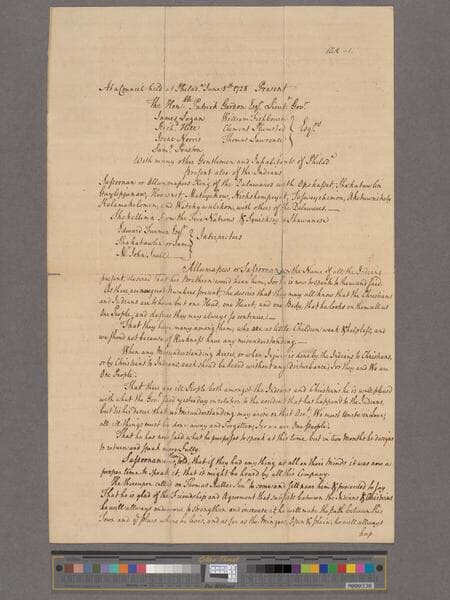 At a Council held at Philad.a June 5th 1728 Present
The Hon.ble Patrick Gordon Esq.r Lieut.t Gov.r
James Logan William Fishbourn
Rich.d Hill Clement Plumsted Esq.rs
Isaac Norris Thomas Lawrence
Sam.l Preston
With many other Gentlemen and Inhabitants of Philad.a
present also of the Indians
Sassoonan or Allumapees King of the Delawares with Opekasset, Shakatawlin
with others of the Delawares
Shekellima from the Five Nations & Shawanese
Edward Farmer Esq.r
Shakatawlin or Sam Interpreters
M.r John Scull
Allumapees or Sassoonan in the Name of all the Indians
present, desired that his Brethren would hear him, for he is now to speak to them and said
As there are now great Numbers present, he desires that they may all know that the Christians
and Indians are to have but one Head, one Heart, and one Body, that he looks on them all as
one People, and desires they may always so continue
That they have many among them, who are as little Children weak & helpless, and
we should not because of Weakness have any misunderstanding.
When any Misunderstanding arises, or when Injury is done by the Indians to Christians,
or by Christians to Indians, each should be heard without any disturbance; for they and We are
One People.
That there are ill People both amongst the Indians and Christians he is well pleased
with what the Gov.r said yesterday in relation to the accident that has happened to the Indians
but tis his desire that no Misunderstanding may arise on that Acc.t We must unite in Love;
all ill things must be done away and forgotten; for we are One People.
That he has now said what he purposed to speak at this time but in two Months he designs
to return and speak more fully.
Sassoonan was told, that if they had any thing at all on their Minds it was now a
proper time to speak it, that it might be heard by all this Company.
He thereupon called on Thomas Rutter Sen.r to come and sit near him & proceeded to say
That he is glad of the Friendship and Agreement that subsists between the Indians & Christians
he will allways endeavour to strengthen and encrease it; he will make the Path between this
Town and y.e place where he lives, and as far as the Mingoes, Open & plain; he will allways
keep